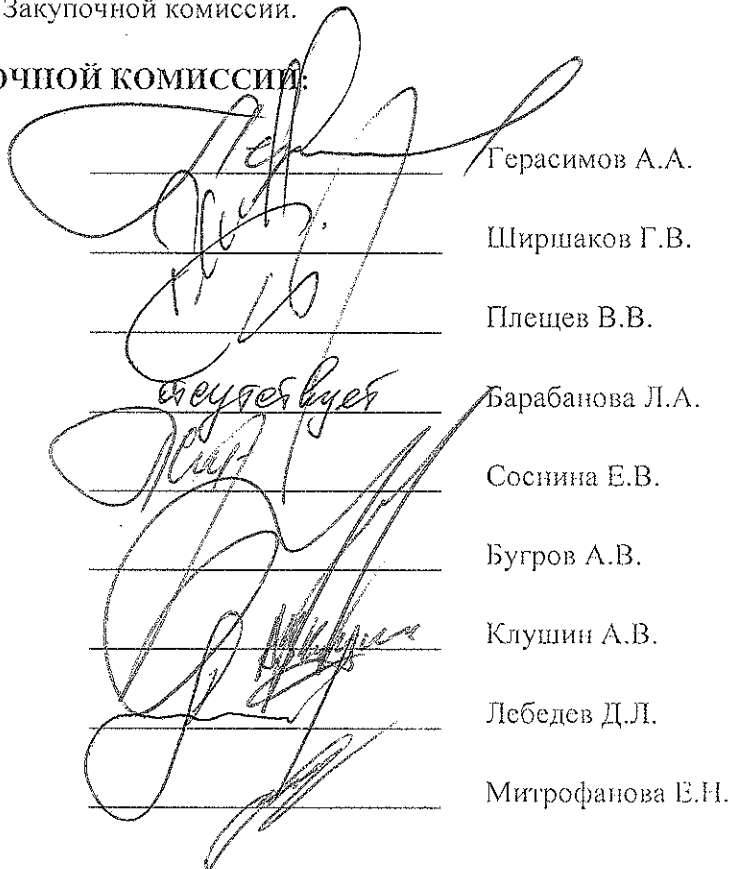 Закупочной комиссии.
ОЧНОЙ КОМИССИИ:
Герасимов А.А.
Ширшаков Г.В.
Плещев В.В.
отсутствует Барабанова Л.А.
Соснина Е.В.
Бугров А.В.
Клушин А.В.
Лебедев Д.Л.
Митрофанова Е.Н.